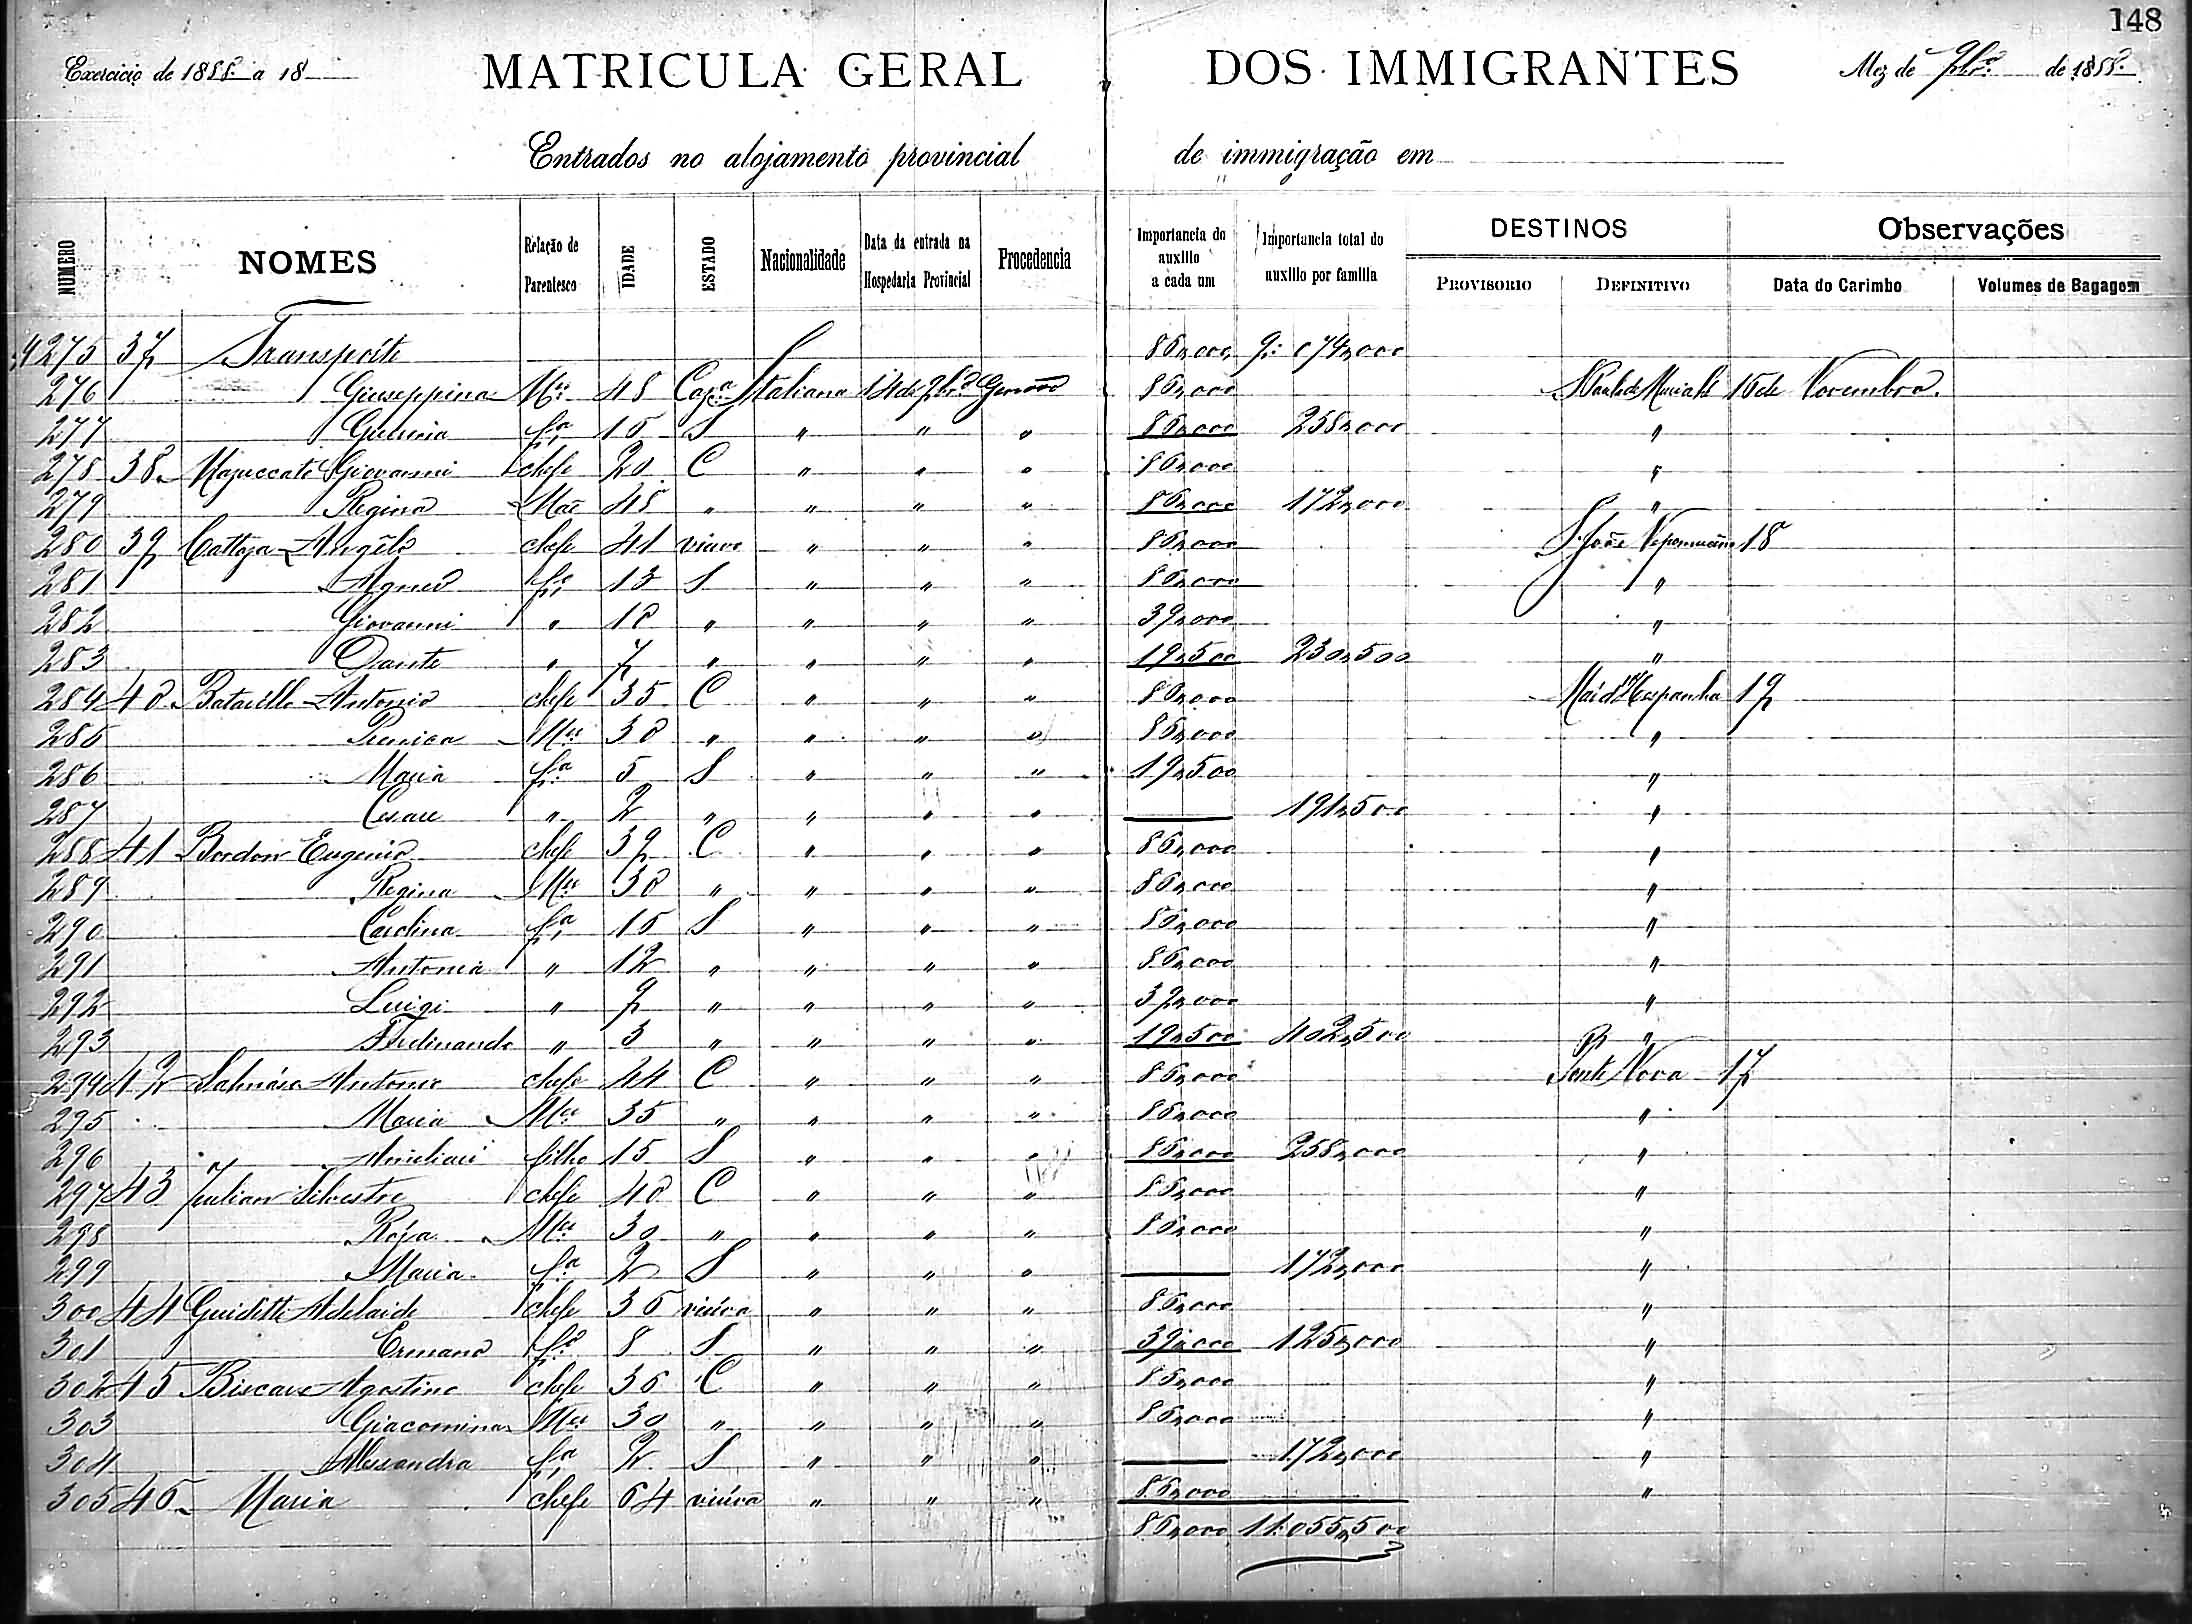 148
Exercicio de 1888 a 18
MATRICULA GERAL DOS IMMIGRANTES
Mez de 9bro. de 1888.
Entrados no alojamento provincial de immigração em
NUMERO NOMES Relação de Parentesco IDADE ESTADO Nacionalidade Data da entrada na Hospedaria Provincial Procedencia Importancia do auxilio a cada um Importancia total do auxilio por familia DESTINOS PROVISORIO DEFINITIVO Observações Data do Carimbo Volumes de Bagagem
275 37 Transporte 86,000 9:074,000
276 Giuseppina Mer 48 Italiana 14 de 9bro Genova 86,000 16 de Novembro.
277 fa 15 S " " " 86,000 258,000 "
278 38 Giovanni chefe 20 C " " " 86,000 "
279 Regina Mãe 48 " " " " 86,000 172,000 "
280 39 Angelo chefe 41 viuvo " " " 86,000 S. João Nepomuceno 18
281 Agnes fa 13 S " " " 86,000 "
282 Giovanni " 10 " " " " 39,000 "
283 Dante " 7 " " " " 19,500 230,500 "
284 40 Antonio chefe 35 C " " " 86,000 Mar d'Hespanha 19
285 Mer 30 " " " " 86,000 "
286 Maria fa 5 S " " " 19,500 "
287 Cesare " 2 " " " " 191,500 "
288 41 Bordon Eugenio chefe 39 C " " " 86,000 "
289 Regina Mer 30 " " " " 86,000 "
290 Carolina fa 15 S " " " 86,000 "
291 Antonia " 12 " " " " 86,000 "
292 Luigi " 9 " " " " 39,000 "
293 Ferdinando " 3 " " " " 19,500 402,500 "
294 42 Antonio chefe 44 C " " " 86,000 Ponte Nova 17
295 Maria Mer 35 " " " " 86,000 "
296 filho 15 S " " " 86,000 258,000 "
297 43 Julian Silvestre chefe 40 C " " " 86,000 "
298 Roza Mer 30 " " " " 86,000 "
299 Maria fa 2 S " " " 172,000 "
300 44 Guidetti Adelaide chefe 36 viúva " " " 86,000 "
301 Ermano fo 8 S " " " 39,000 125,000 "
302 45 Agostino chefe 36 C " " " 86,000 "
303 Giacomina Mer 30 " " " " 86,000 "
304 Alessandra fa 2 S " " " 172,000 "
305 46 Maria chefe 64 viúva " " " 86,000 "
86,000 11:055,500